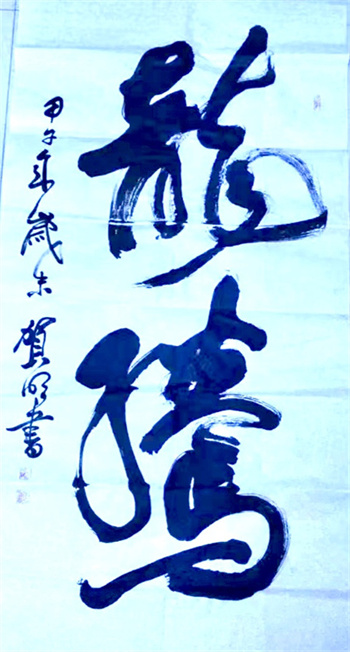 龍騰
甲午年歲末 賀明書